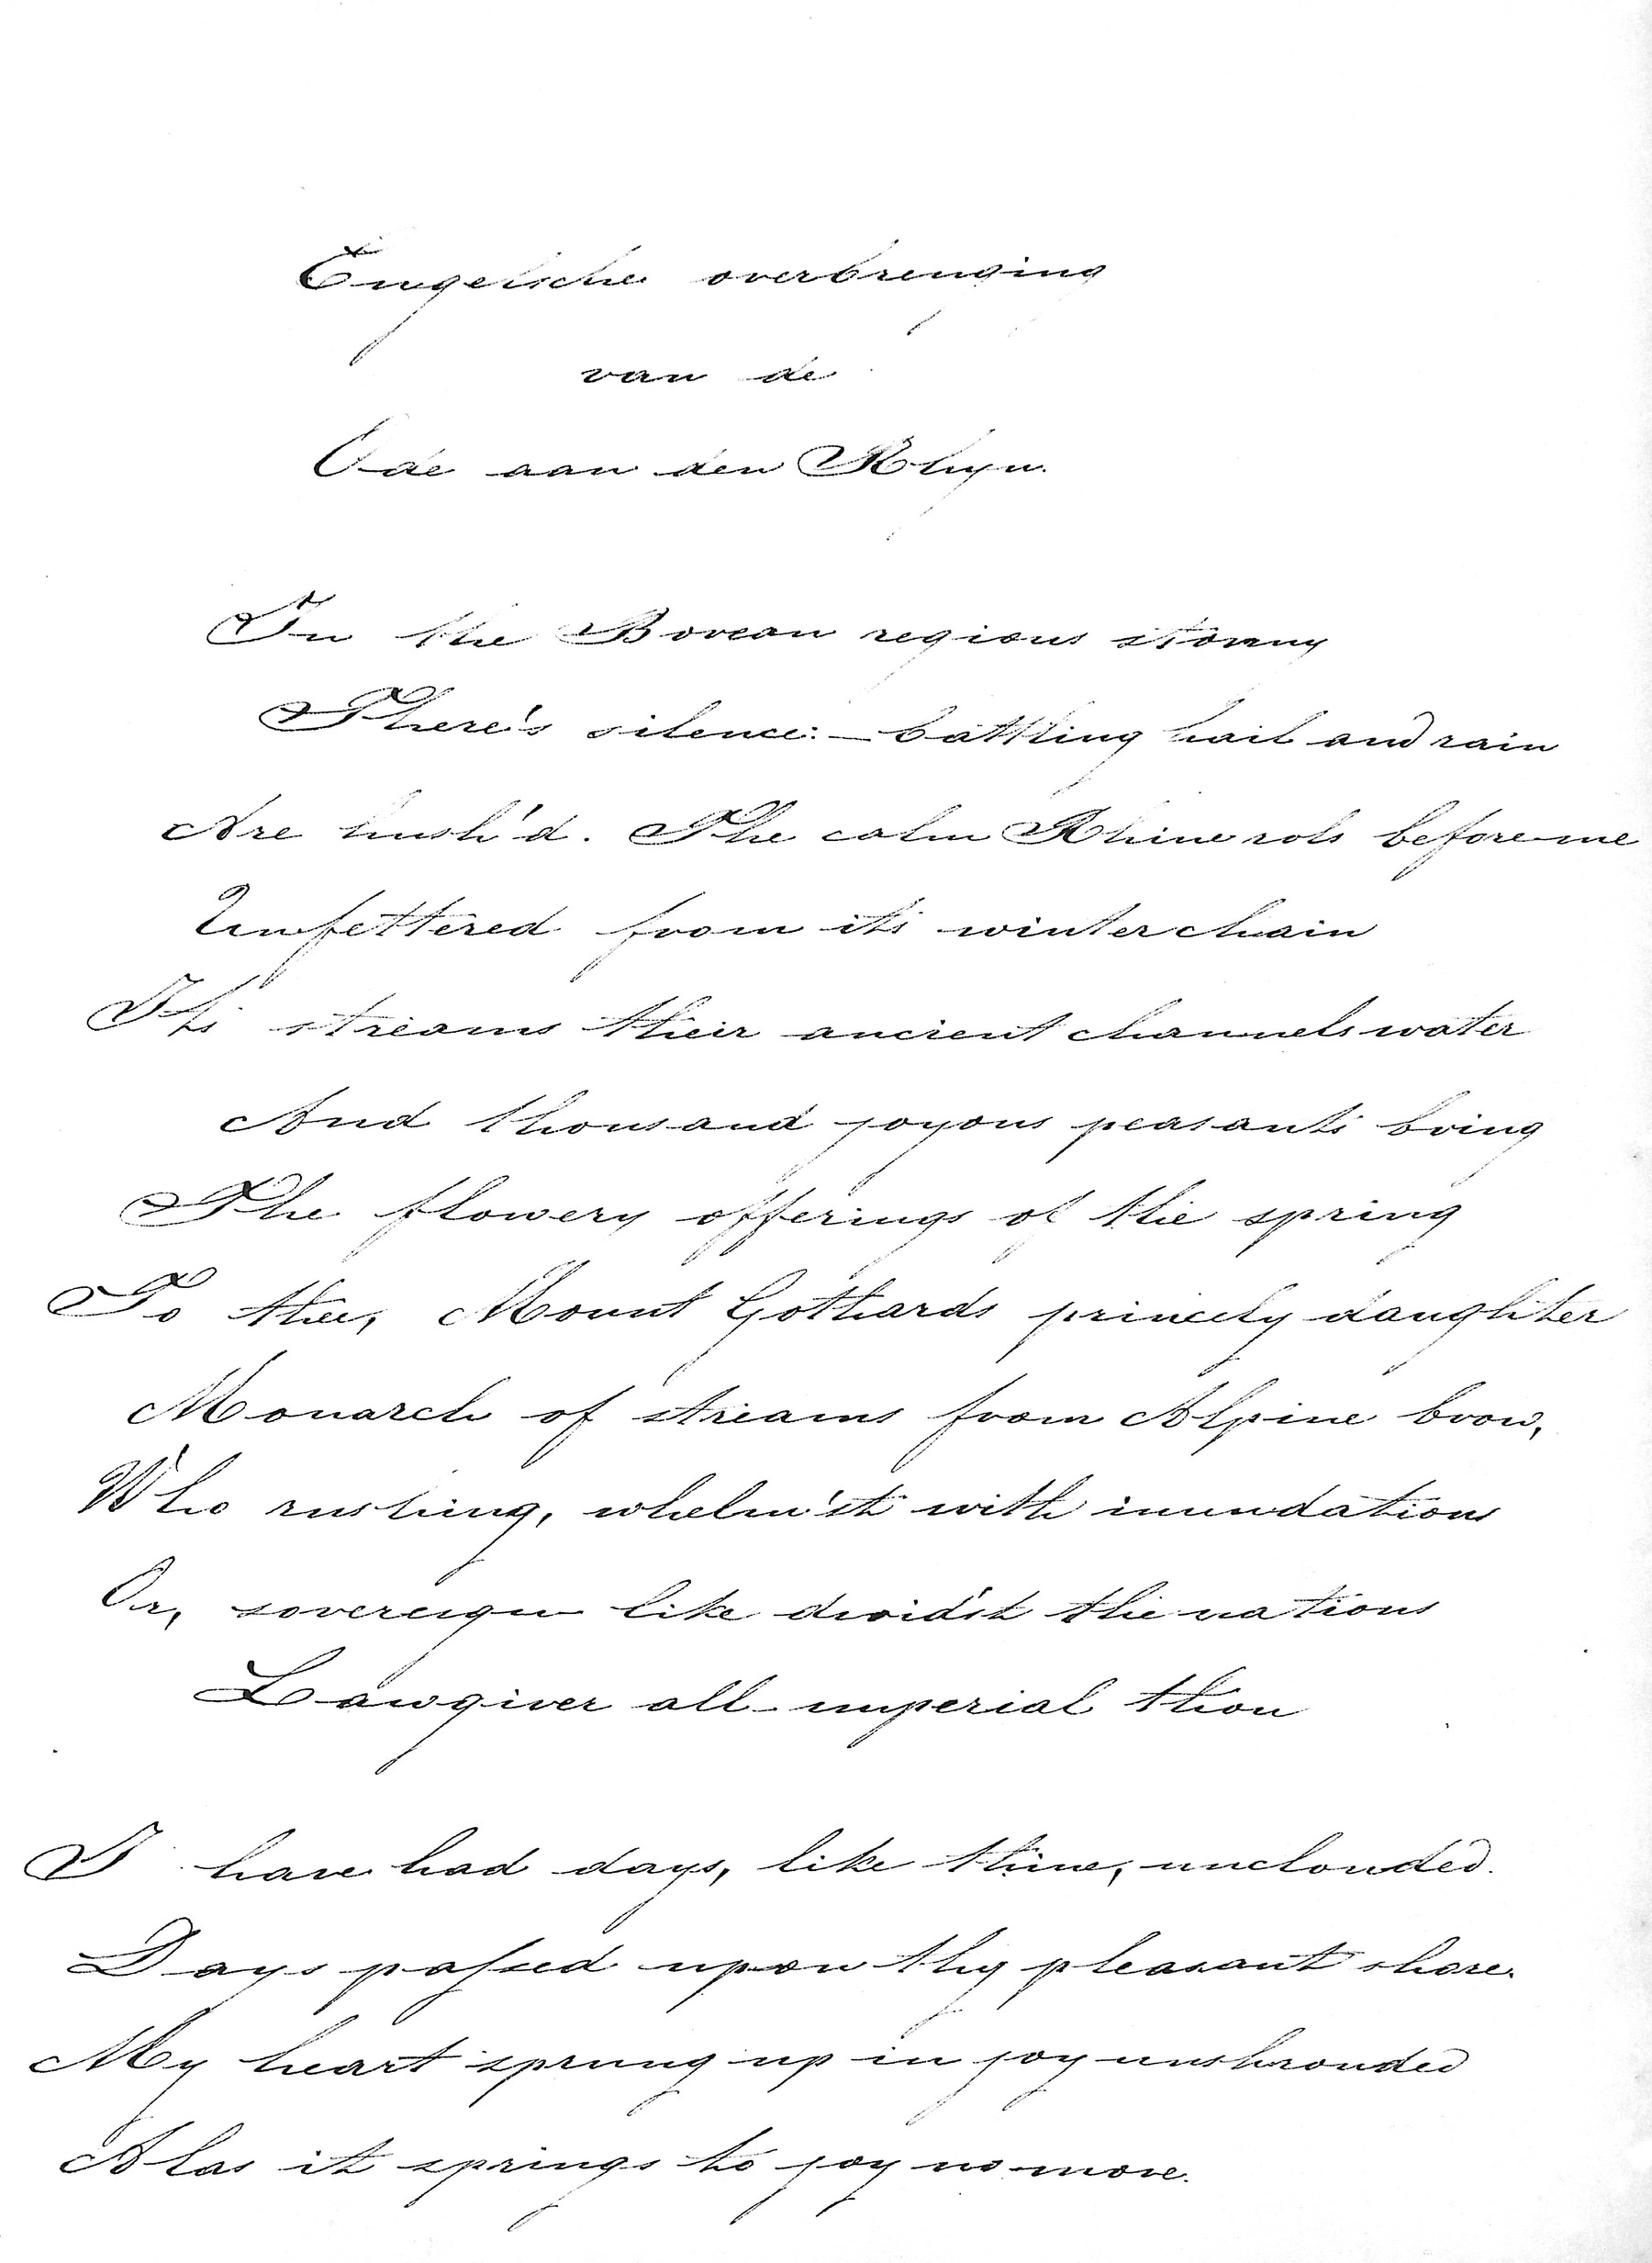 Engelsche overbrenging
van de
Ode aan den Rhyn.
In the Borean regions stormy
There's silence: – battling hail and rain
Are hush'd. The calm Rhine rols before me
Unfettered from its winter chain
Its streams their ancient channels water
And thousand joyous peasants bring
The flowery offerings of the spring
To thee, Mount Gothards princely daughter
Monarch of streams from Alpine brow,
Who rushing, whelm'st with inundations
Or, sovereign like divid'st the nations
Lawgiver all imperial thou
I have had days, like thine, unclouded.
Days passed upon thy pleasant shore.
My heart sprung up in joy unshrouded
Alas it springs to joy no more.